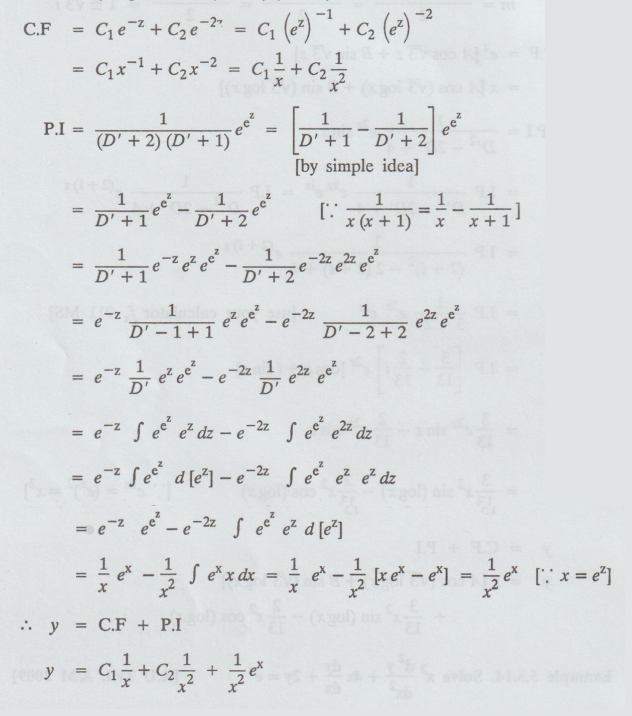 C.F = C₁ e^{-z} + C₂ e^{-2z} = C₁ (e^z)^{-1} + C₂ (e^z)^{-2}
= C₁ x^{-1} + C₂ x^{-2} = C₁ 1/x + C₂ 1/x²
P.I = 1/((D′ + 2) (D′ + 1)) e^{e^z} = [1/(D′ + 1) − 1/(D′ + 2)] e^{e^z}
[by simple idea]
= 1/(D′ + 1) e^{e^z} − 1/(D′ + 2) e^{e^z} [∵ 1/(x (x + 1)) = 1/x − 1/(x + 1)]
= 1/(D′ + 1) e^{-z} e^z e^{e^z} − 1/(D′ + 2) e^{-2z} e^{2z} e^{e^z}
= e^{-z} 1/(D′ − 1 + 1) e^z e^{e^z} − e^{-2z} 1/(D′ − 2 + 2) e^{2z} e^{e^z}
= e^{-z} 1/D′ e^z e^{e^z} − e^{-2z} 1/D′ e^{2z} e^{e^z}
= e^{-z} ∫ e^{e^z} e^z dz − e^{-2z} ∫ e^{e^z} e^{2z} dz
= e^{-z} ∫ e^{e^z} d [e^z] − e^{-2z} ∫ e^{e^z} e^z e^z dz
= e^{-z} e^{e^z} − e^{-2z} ∫ e^{e^z} e^z d [e^z]
= 1/x e^x − 1/x² ∫ e^x x dx = 1/x e^x − 1/x² [xe^x − e^x] = 1/x² e^x [∵ x = e^z]
∴ y = C.F + P.I
y = C₁ 1/x + C₂ 1/x² + 1/x² e^x